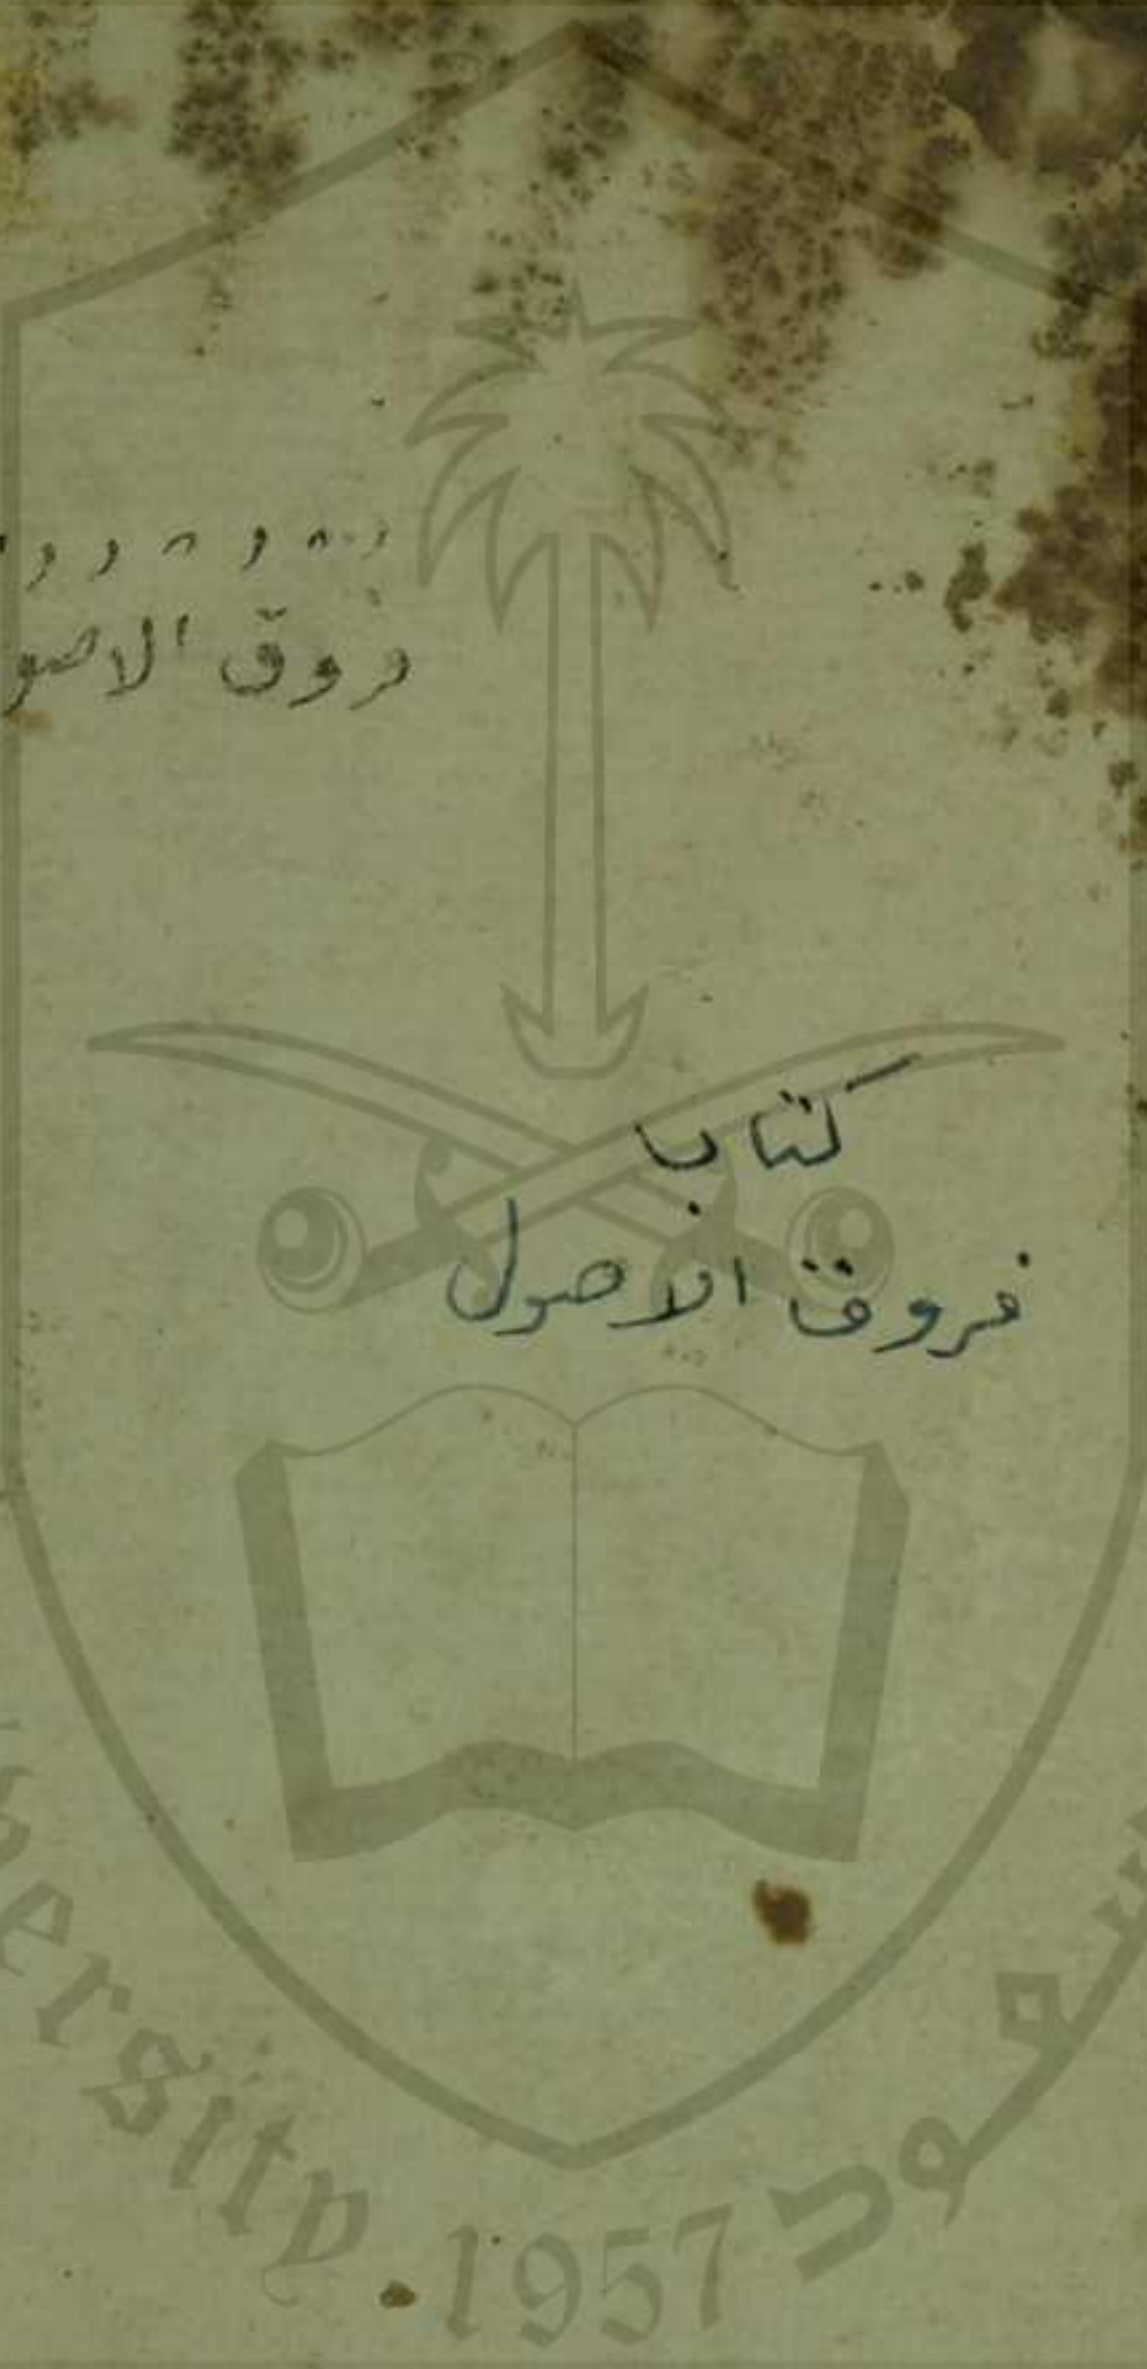 فروق الاصو
كتاب
فروق الاصول
ersity
1957